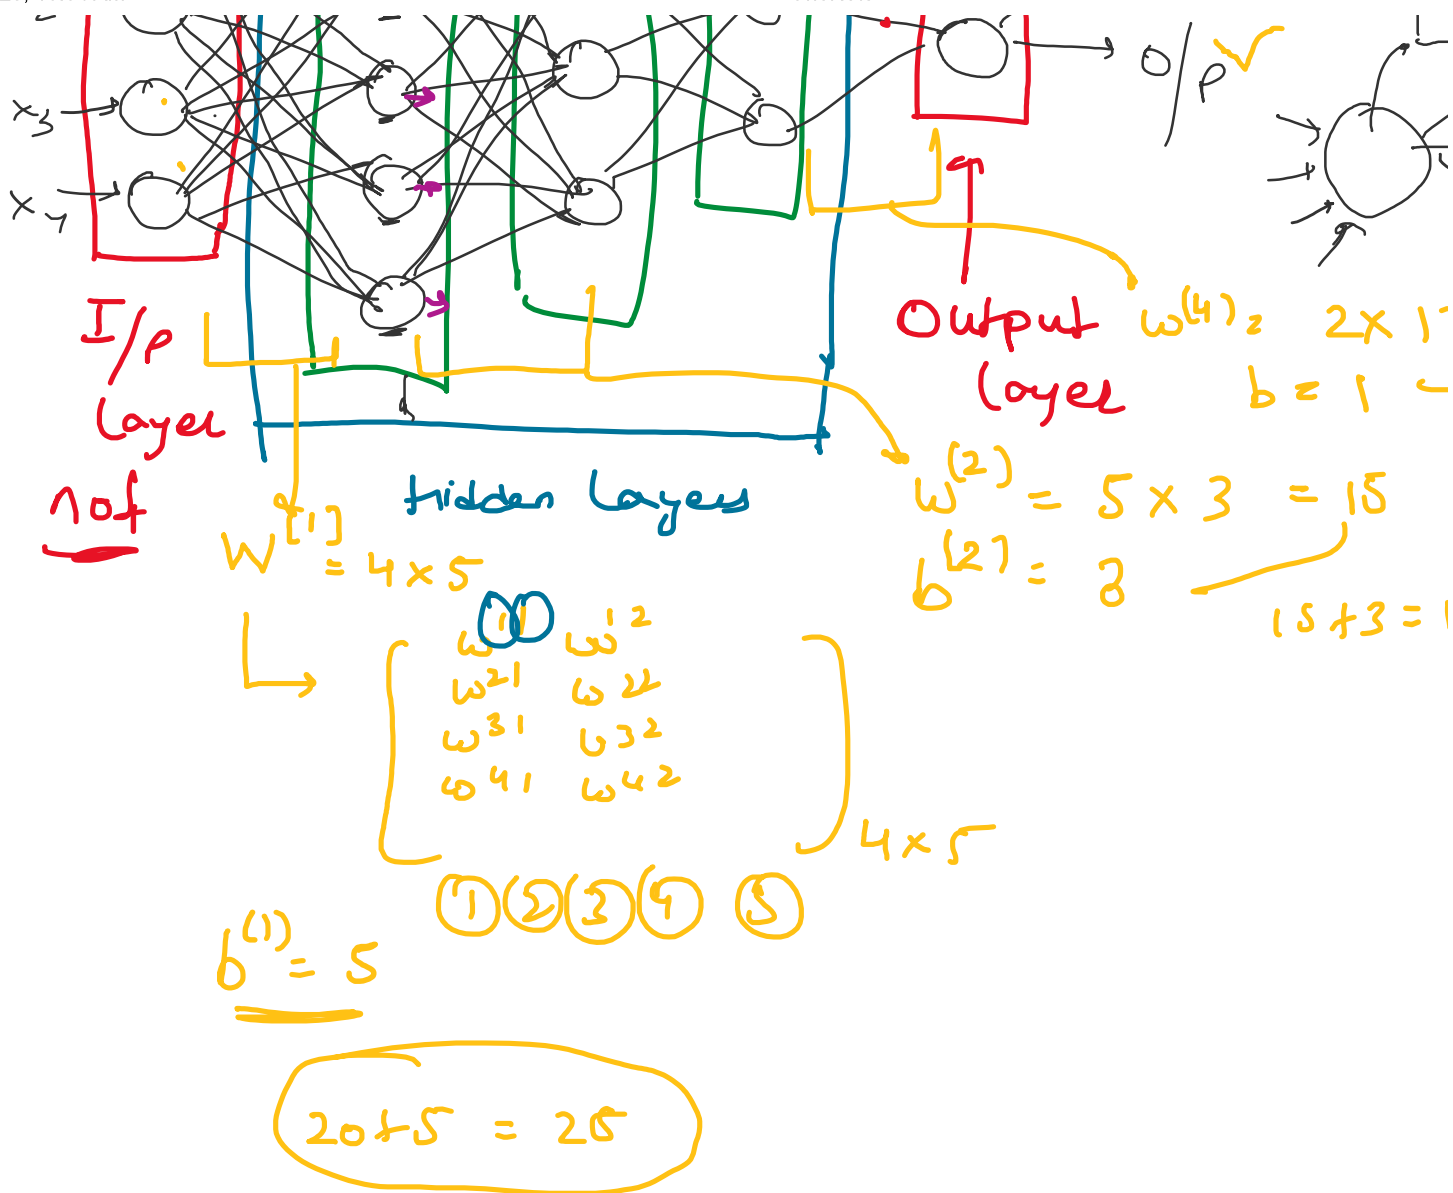 x3
x4
O/P ✓
I/P
Layer
not
Output
Layer
w(4) =
2x1
b = 1
Hidden Layers
w(2) = 5 x 3 = 15
b(2) = 3
15+3 =
W[1] = 4x5
w11 w12
w21 w22
w31 w32
w41 w42
4x5
1 2 3 4 5
b(1) = 5
20+5 = 25